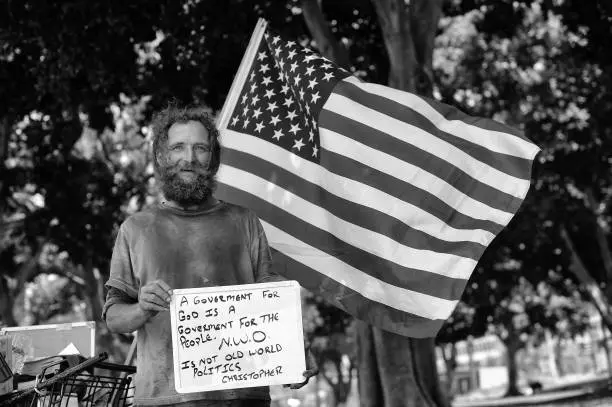 A GOVERMENT FOR
GOD IS A
GOVERMENT FOR THE
PEOPLE. N.W.O.
IS NOT OLD WORLD
POLITICS
CHRISTOPHER